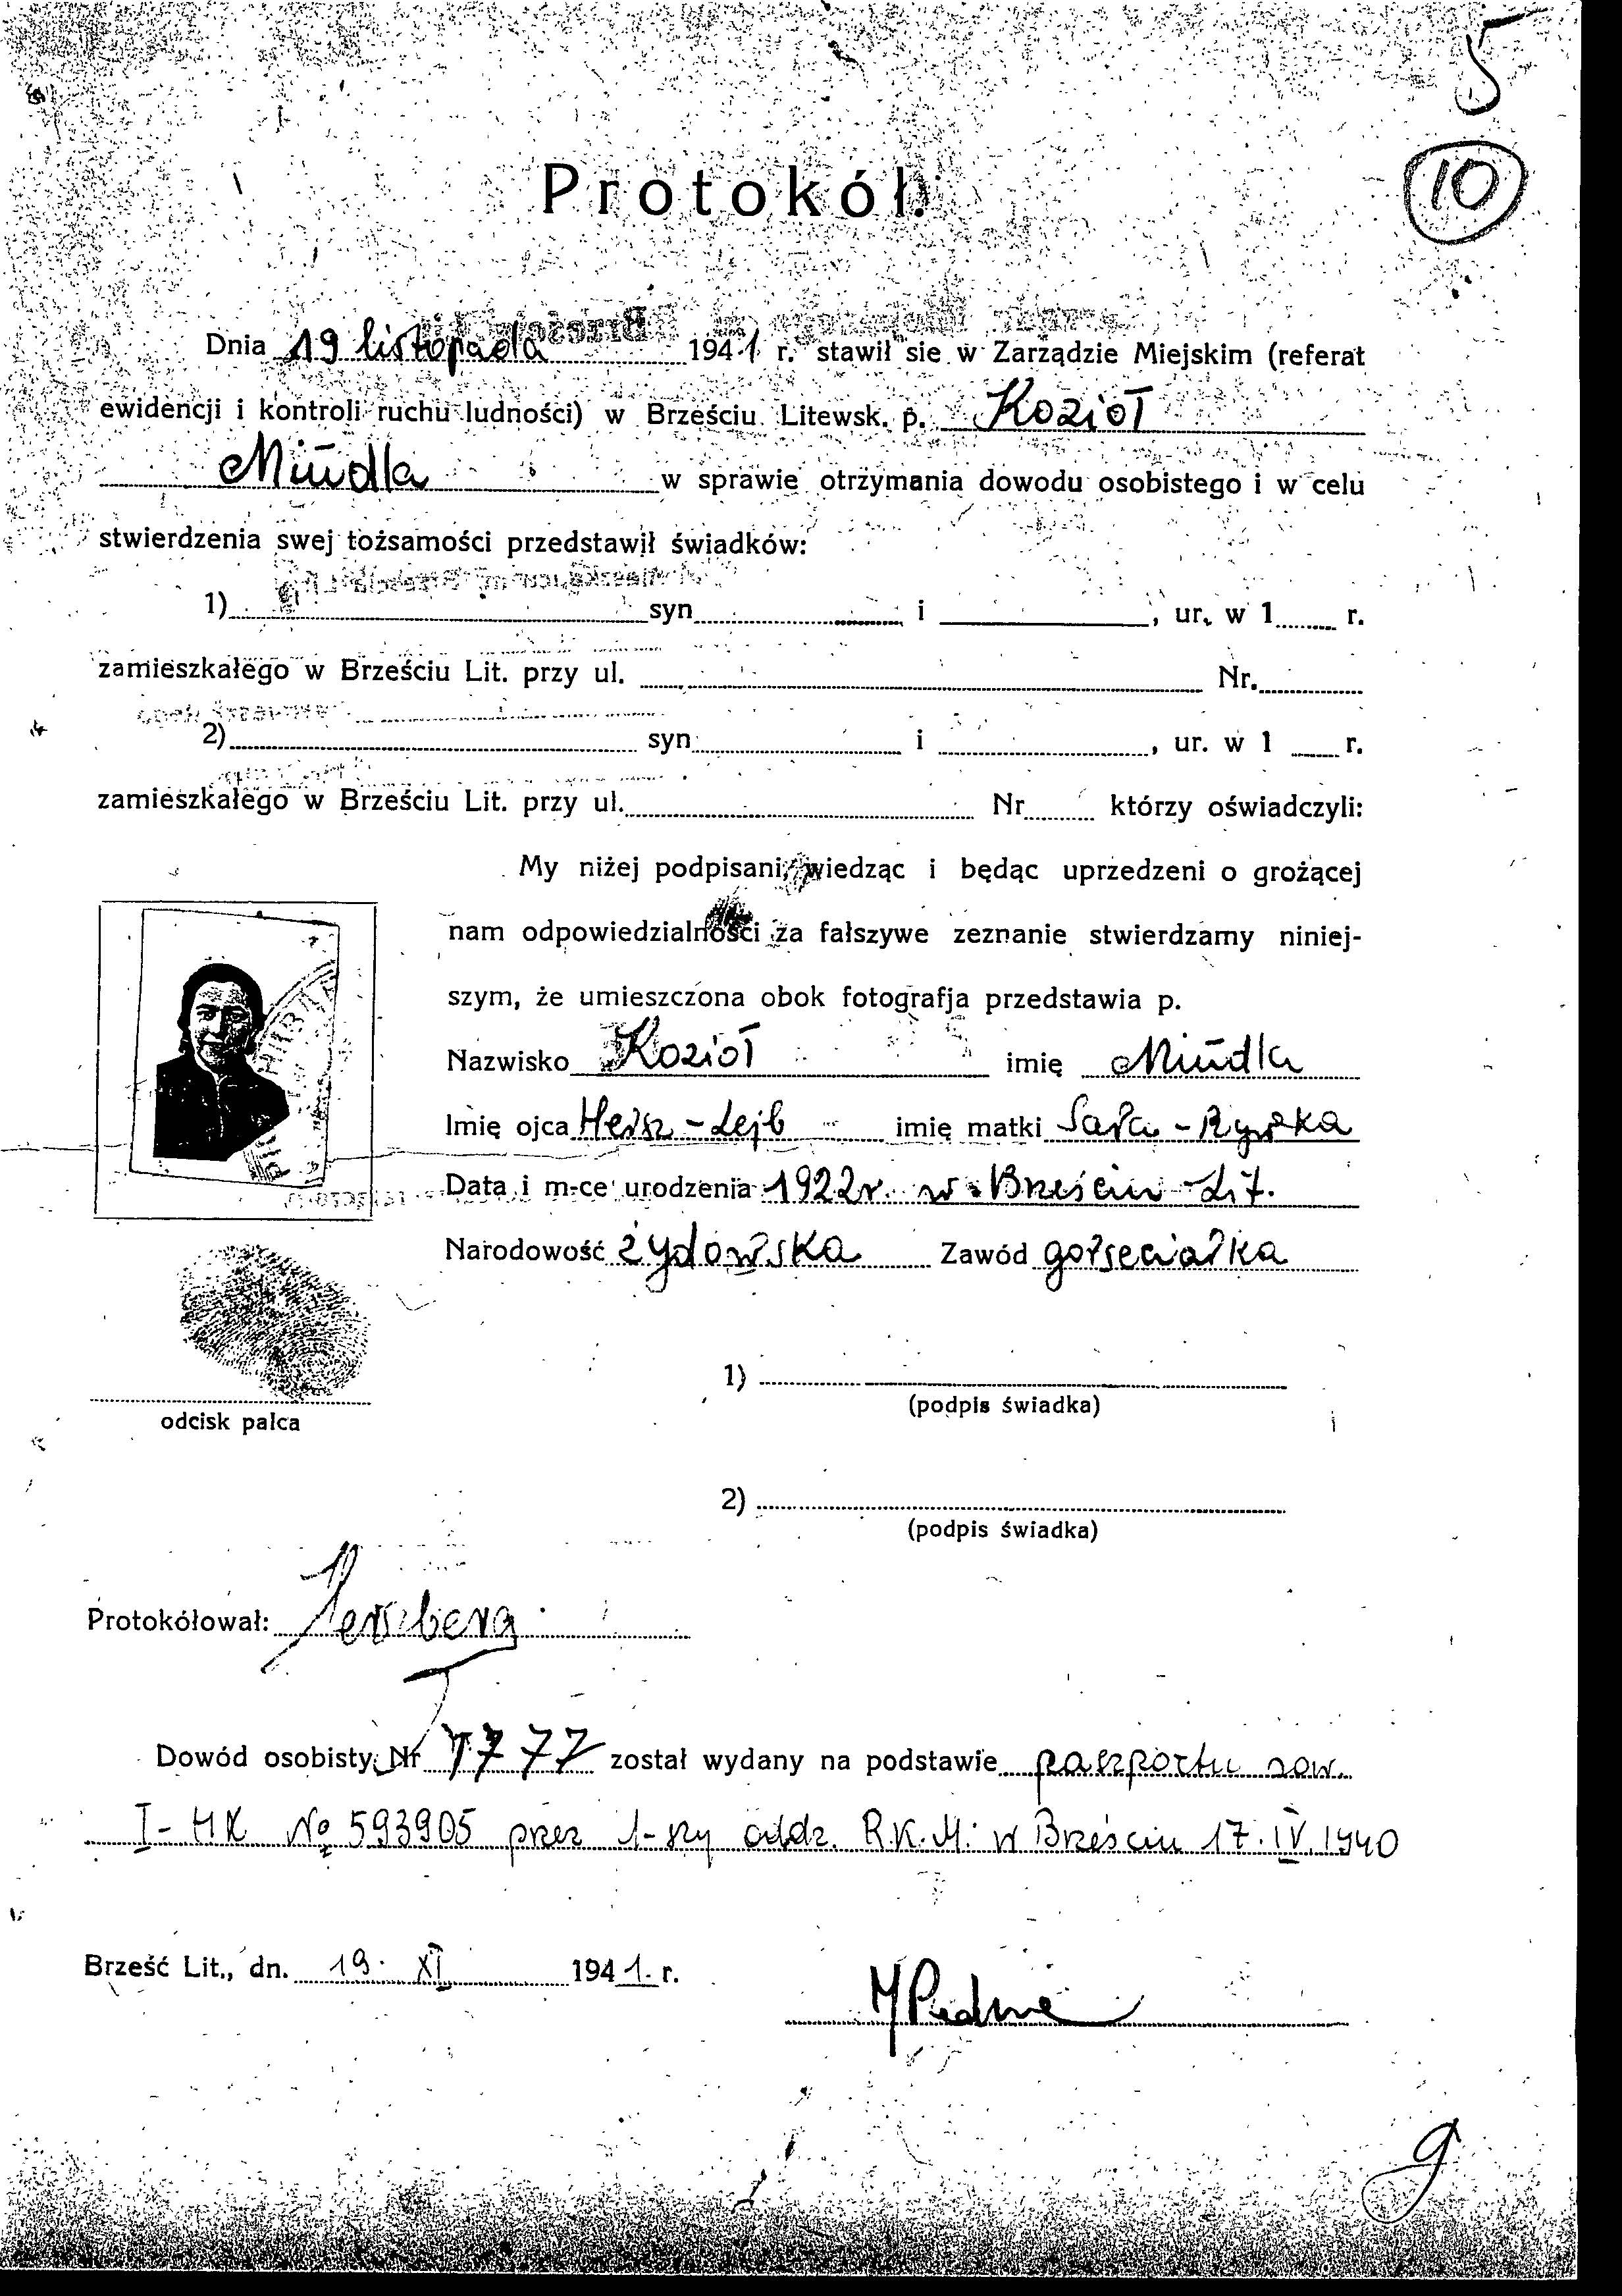 5
10
Protokół.
Dnia 19 listopada 1941 r. stawił sie w Zarządzie Miejskim (referat
ewidencji i kontroli ruchu ludności) w Brześciu Litewsk. p. Kozioł
Mindla w sprawie otrzymania dowodu osobistego i w celu
stwierdzenia swej tożsamości przedstawił świadków:
1) syn i , ur. w 1 r.
zamieszkałego w Brześciu Lit. przy ul. Nr.
2) syn i , ur. w 1 r.
zamieszkałego w Brześciu Lit. przy ul. Nr którzy oświadczyli:
My niżej podpisani, wiedząc i będąc uprzedzeni o grożącej
nam odpowiedzialności za fałszywe zeznanie stwierdzamy niniej-
szym, że umieszczona obok fotografja przedstawia p.
Nazwisko Kozioł imię Mindla
Imię ojca Hersz-Lejb imię matki Sara-Rywka
Data i m-ce urodzenia 1922 r. w Brześciu Lit.
Narodowość żydowska Zawód gorseciarka
odcisk palca
1)
(podpis świadka)
2)
(podpis świadka)
Protokółował: Herszberg
Dowód osobisty Nr 7777 został wydany na podstawie paszportu sow.
I-HK № 593905 przez 1-szy oddz. R.K.M. w Brześciu 17.IV.1940
Brześć Lit., dn. 19. XI 1941. r.
9